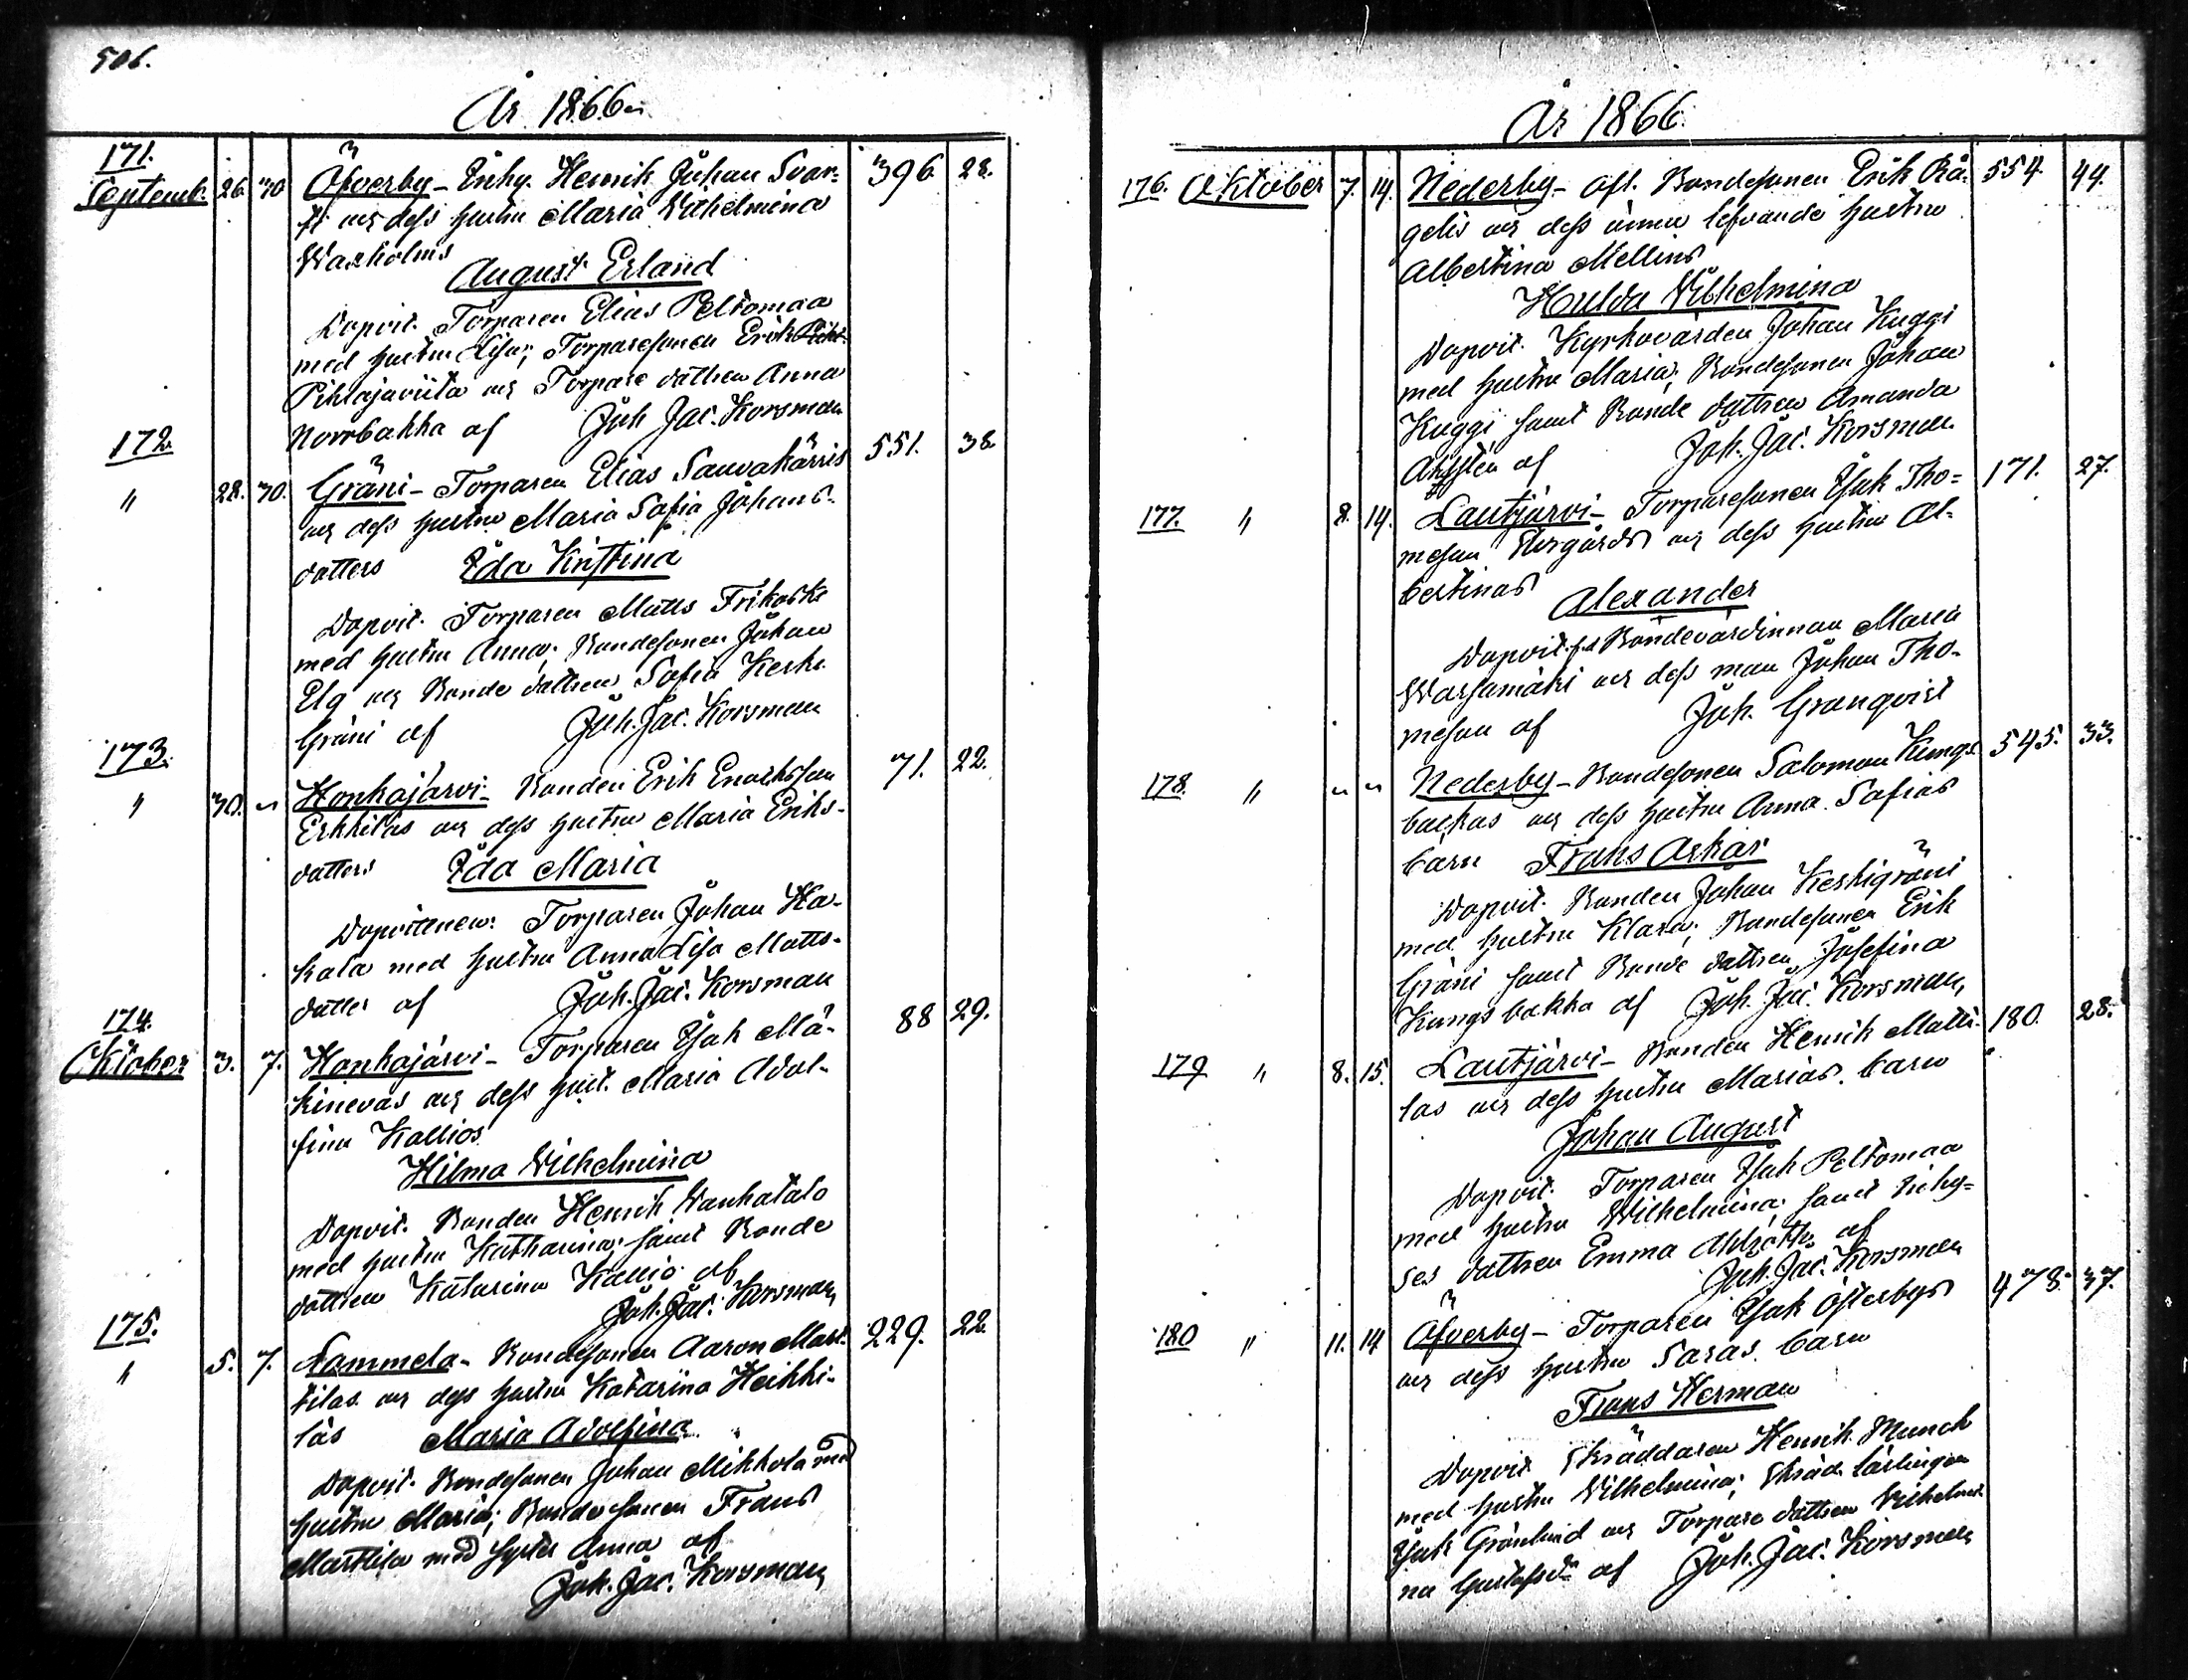 506.
År 1866.
171.
Septemb. 26. 30 Öfverby – Inhy. Henrik Johan Svar- 396. 28.
ft och dess hustru Maria Wilhelmina
Waxholms
August Erland
Dopvit. Torparen Elias Peltomaa
med hustru Lisa; Torparesonen Erik
Pihlajaviita och Torpare dottren Anna
Norrbakka af Joh. Jac. Korsman
172.
" 28. 30. Gräni – Torparen Elias Sauvakärris 551. 38.
och dess hustru Maria Sofia Johans-
dotters Ida Kristina
Dopvit. Torparen Matts Frikoski
med hustru Anna; Bondesonen Johan
Elg och Bonde dottren Sofia Keski
Gräni af Joh. Jac. Korsman
173.
" 30. " Honkajärvi – Bonden Erik Enockson 71. 22.
Erkkilas och dess hustru Maria Eriks-
dotters Ida Maria
Dopvittnen: Torparen Johan Ha-
kala med hustru Anna Lisa Matts-
dotter af Joh. Jac. Korsman
174.
Oktober 3. 7. Honkajärvi – Torparen Isak Mä- 88 29.
kinevas och dess hust. Maria Adol-
fina Kallios
Hilma Wilhelmina
Dopvit. Bonden Henrik Wanhatalo
med hustru Katharina; samt Bonde
dottren Katarina Kallio af
Joh. Jac. Korsman
175.
" 5. 7. Lammela – Bondesonen Aaron Mart- 229. 22.
tilas och dess hustru Katarina Heikki-
läs Maria Adolfina
Dopvit. Bondesonen Johan Mikkola med
hustru Maria; Bondesonen Frans
Marttila med syster Anna af
Joh. Jac. Korsman
År 1866.
176. Oktober 7. 14. Nederby – Afl. Bondesonen Erik Rå- 554. 44.
gels och dess ännu lefvande hustru
Albertina Mellins
Hulda Wilhelmina
Dopvit. Kyrkovärden Johan Kuggi
med hustru Maria; Bondesonen Johan
Kuggi samt Bonde dottren Amanda
af Joh. Jac. Korsman
177. " 8. 14. Lautjärvi – Torparesonen Isak Tho- 171. 27.
meson och dess hustru Al-
bertinas Alexander
Dopvit. Bondevärdinnan Maria
Warsamäki och dess man Johan Tho-
meson af Joh. Granqvist
178. " " " Nederby – Bondesonen Salomon Kungs- 545. 33.
backas och dess hustru Anna Sofias
barn Frans Oskar
Dopvit. Bonden Johan Keskigräni
med hustru Klara; Bondesonen Erik
Gräni samt Bonde dottren Josefina
Kungsbakka af Joh. Jac. Korsman,
179 " 8. 15. Lautjärvi – Bonden Henrik Matti- 180. 28.
las och dess hustru Marias barn
Johan August
Dopvit. Torparen Isak Peltomaa
med hustru Wilhelmina; samt Inhy-
ses dottren Emma af
Joh. Jac. Korsman
180 " 11. 14 Öfverby – Torparen Isak Österbys 478. 37.
och dess hustru Saras barn
Frans Herman
Dopvit. Skräddaren Henrik Munck
med hustru Wilhelmina; Skräd. lärlingen
Isak Grönlund och Torpare dottren Wilhelmi-
na Gustafsdr af Joh. Jac. Korsman